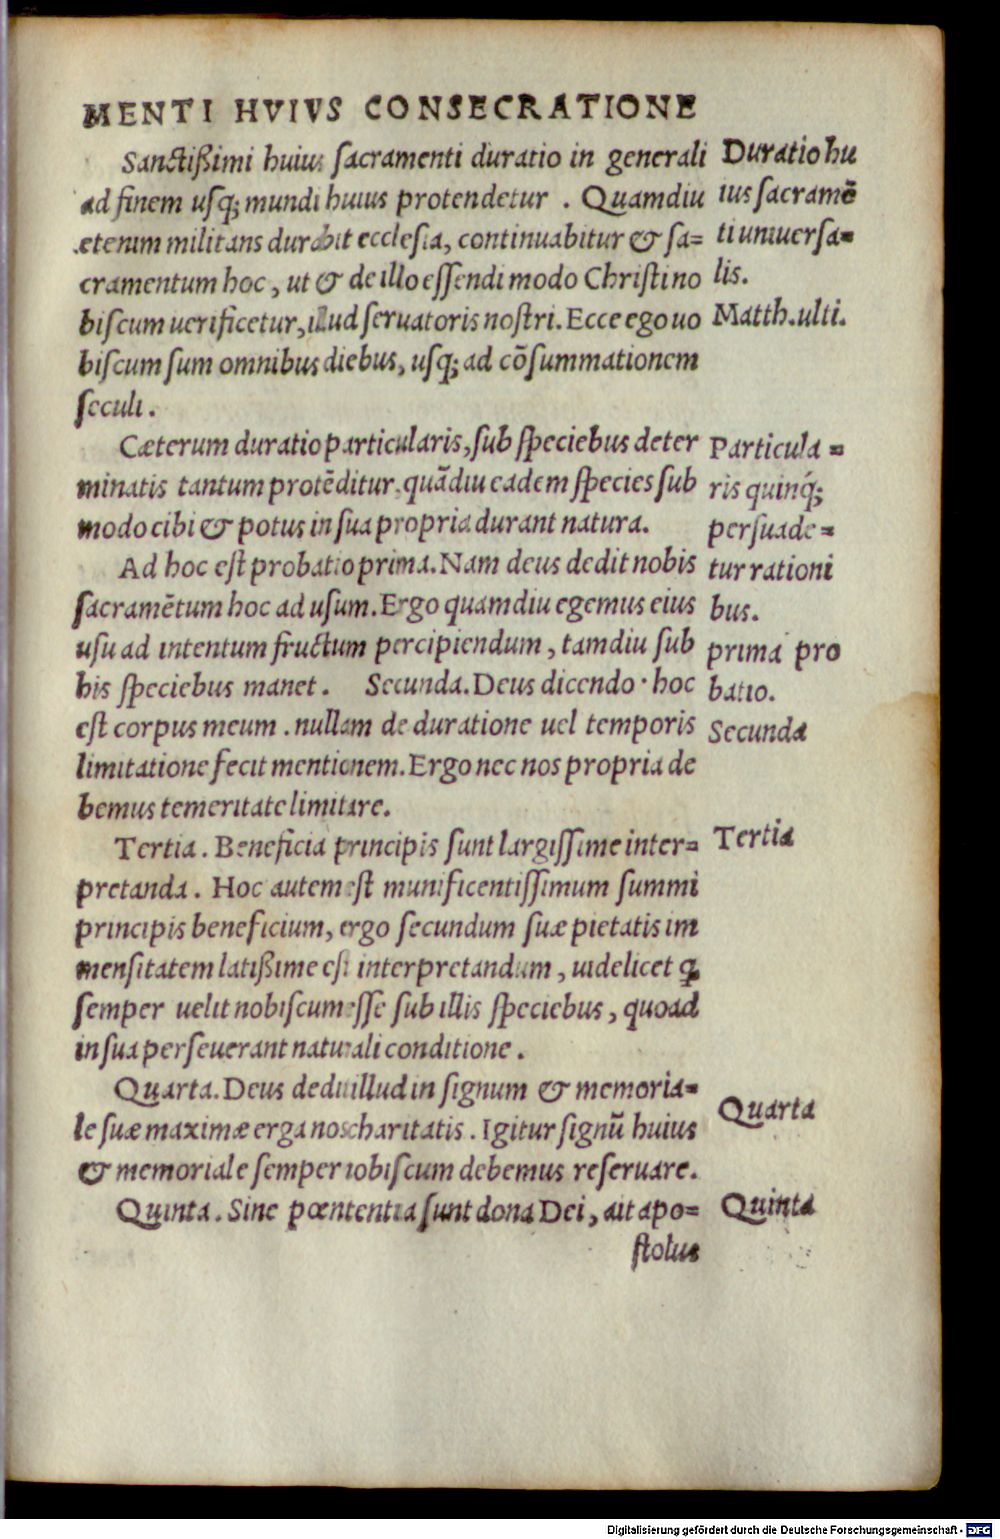 MENTI HVIVS CONSECRATIONE
Sanctißimi huius sacramenti duratio in generali
ad finem usq; mundi huius protendetur . Quamdiu
etenim militans durabit ecclesia, continuabitur & sa=
cramentum hoc, ut & de illo essendi modo Christi no
biscum uerificetur, illud seruatoris nostri. Ecce ego uo
biscum sum omnibus diebus, usq; ad cõsummationem
seculi.
Duratio hu
ius sacramẽ
ti uniuersa=
lis.
Matth. ulti.
Cæterum duratio particularis, sub speciebus deter
minatis tantum protẽditur, quãdiu eadem species sub
modo cibi & potus in sua propria durant natura.
Ad hoc est probatio prima. Nam deus dedit nobis
sacramẽtum hoc ad usum. Ergo quamdiu egemus eius
usu ad intentum fructum percipiendum, tamdiu sub
his speciebus manet. Secunda. Deus dicendo · hoc
est corpus meum . nullam de duratione uel temporis
limitatione fecit mentionem. Ergo nec nos propria de
bemus temeritate limitare.
Particula=
ris quinq́;
persuade=
tur rationi
bus.
prima pro
batio.
Secunda
Tertia. Beneficia principis sunt largissime inter=
pretanda. Hoc autem est munificentissimum summi
principis beneficium, ergo secundum suæ pietatis im
mensitatem latißime est interpretandum, uidelicet ꝙ
semper uelit nobiscum esse sub illis speciebus, quoad
in sua perseuerant naturali conditione.
Tertia
Quarta. Deus dedit illud in signum & memoria=
le suæ maximæ erga nos charitatis. Igitur signũ huius
& memoriale semper nobiscum debemus reseruare.
Quarta
Quinta. Sine pœntentia sunt dona Dei, ait apo=
stolus
Quinta
Digitalisierung gefördert durch die Deutsche Forschungsgemeinschaft - DFG